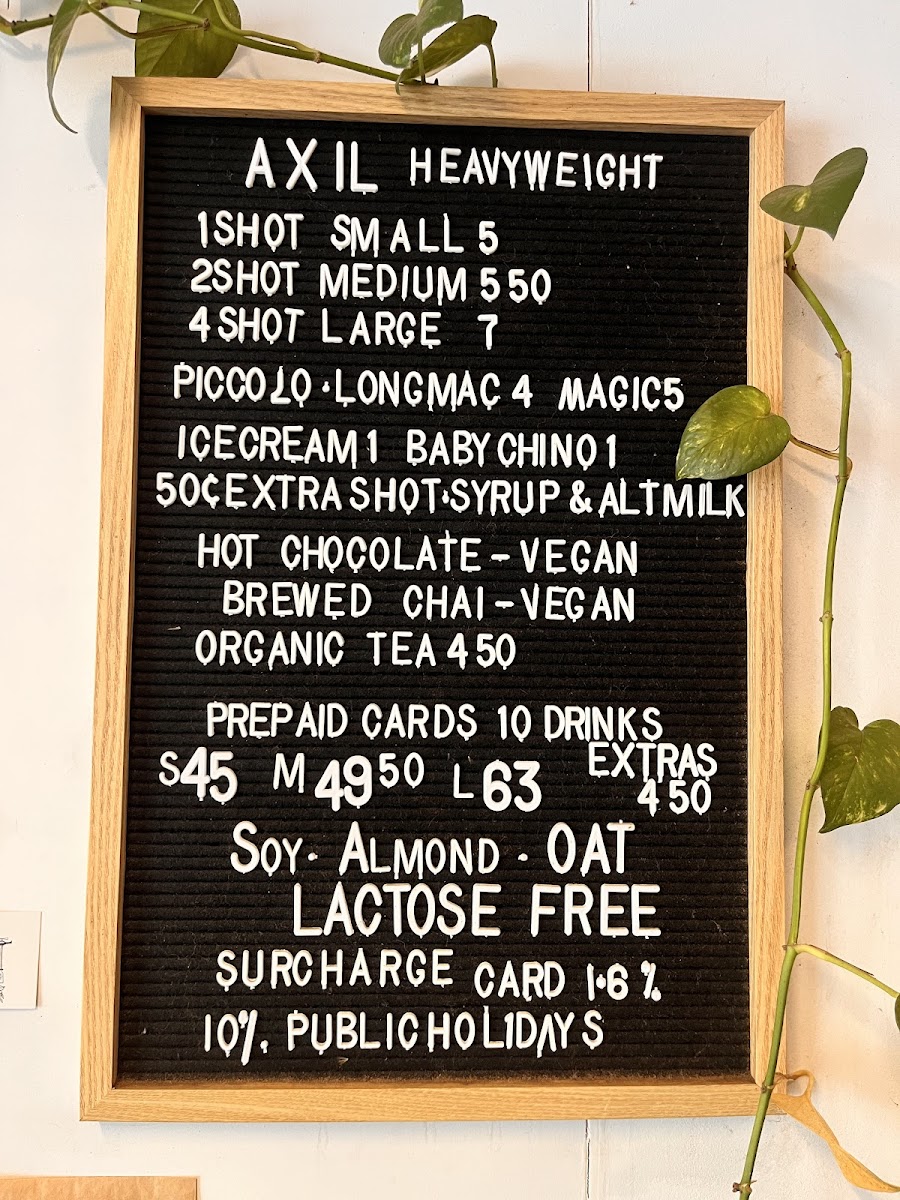 AXIL HEAVYWEIGHT
1SHOT SMALL 5
2SHOT MEDIUM 5 50
4SHOT LARGE 7
PICCOLO · LONGMAC 4 MAGIC5
ICECREAM 1 BABYCHINO 1
50¢ EXTRA SHOT·SYRUP & ALTMILK
HOT CHOCOLATE - VEGAN
BREWED CHAI - VEGAN
ORGANIC TEA 4 50
PREPAID CARDS 10 DRINKS
S45 M 49 50 L 63 EXTRAS 4 50
SOY · ALMOND · OAT
LACTOSE FREE
SURCHARGE CARD 1·6 %
10% PUBLIC HOLIDAYS